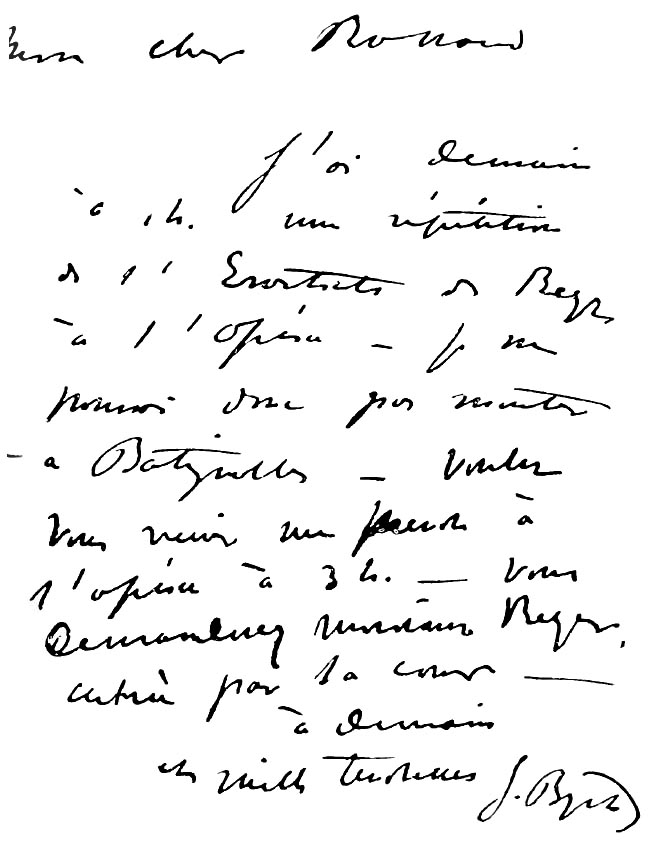 Mon cher
J'ai demain
à 1h. une répétition
de l'Erostrate de Reyer
à l'Opéra — je ne
pourrai donc pas monter
à Batignolles — Voulez
vous venir me prendre à
l'opéra à 3 h. — Vous
demanderez monsieur Reyer,
entrée par la cour —
à demain
et mille tendresses G. Bizet